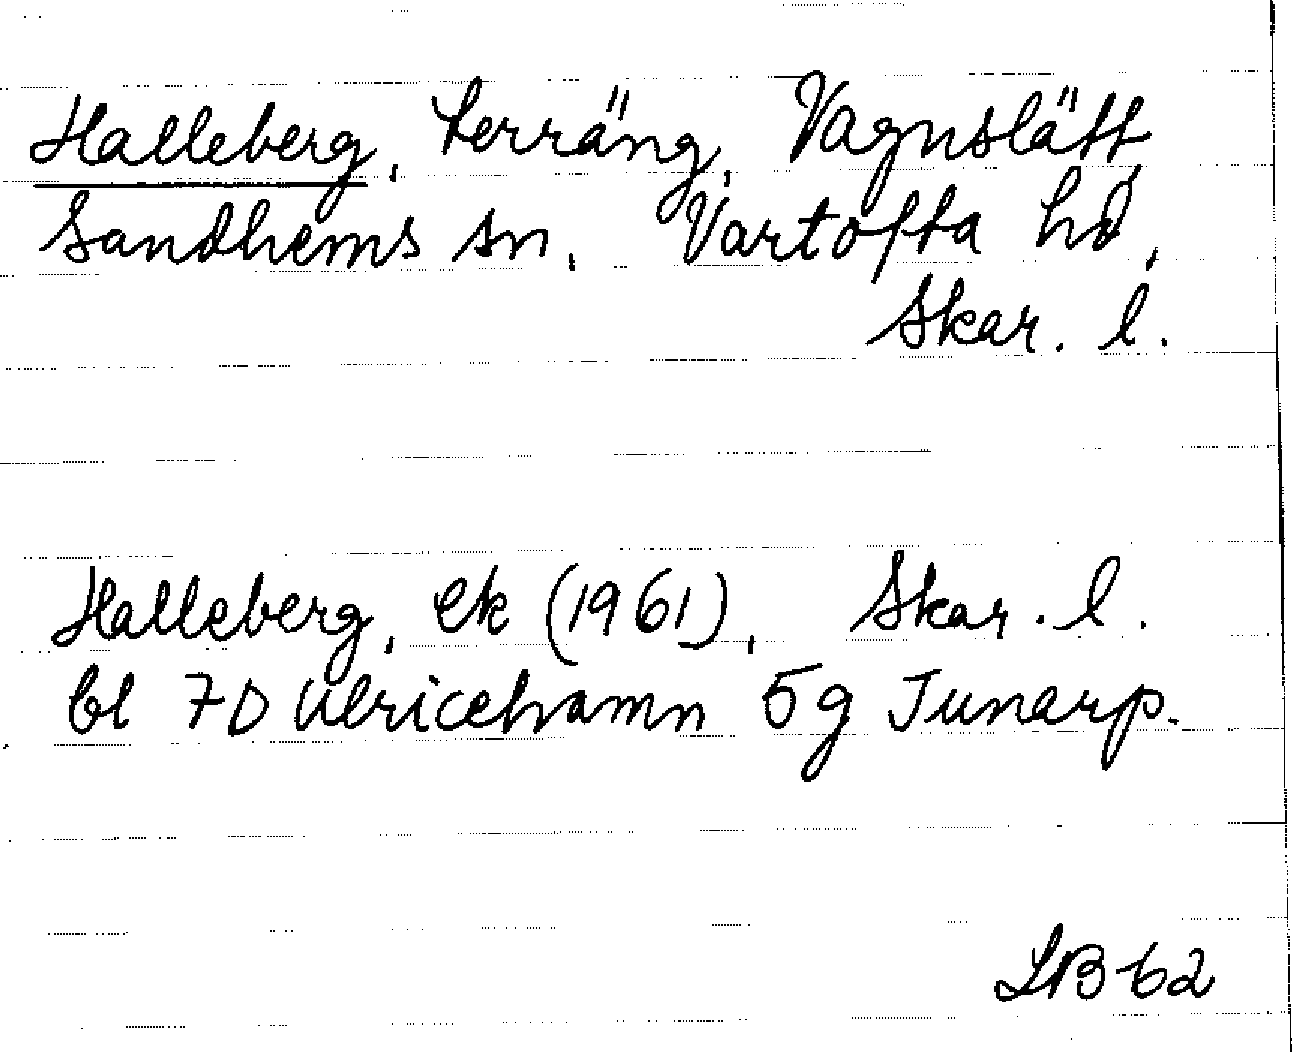 Halleberg, terräng, Vagnslätt,
Sandhems sn, Vartofta hd,
Skar. l.
Halleberg, ek (1961), Skar. l.
bl 7D Ulricehamn 5g Junarp.
LB 62